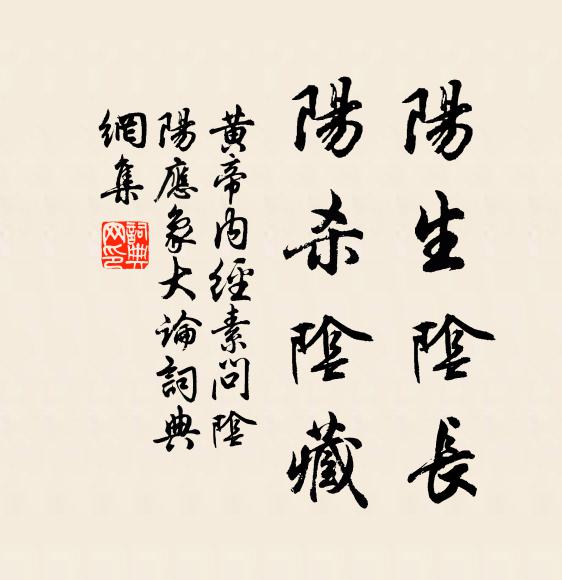 陽生陰長
陽杀陰藏
黃帝内經素問陰
陽應象大論詞典
網集
詞典
网印